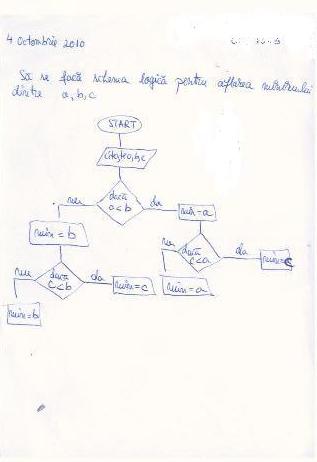 4 Octombrie 2010
Să se facă schema logică pentru aflarea minimului
dintre a, b, c
START
citește a,b,c
nu
dacă
a<b
da
min=a
min=b
nu
dacă
c<a
da
min=c
nu
dacă
c<b
da
min=c
min=a
min=b